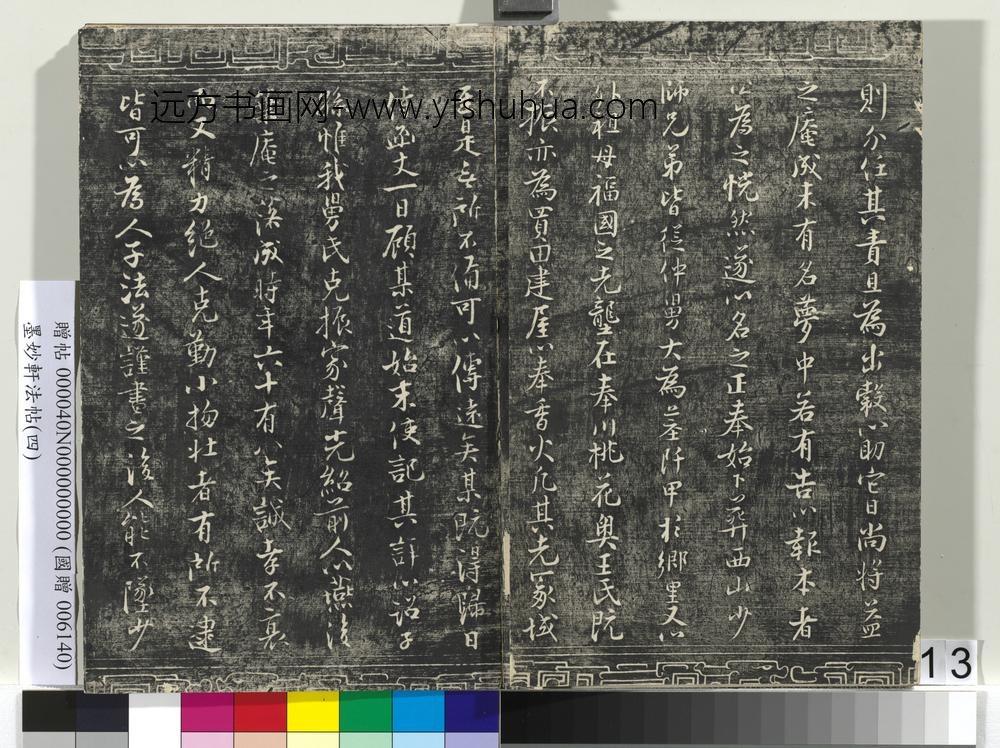 則分任其責且為出穀以助它日尚將益
之庵成未有名夢中若有告以報本者
以為之恍然遂以名之正奉始卜葬西山少
師兄弟皆從仲舅大為塋阡甲於鄉里又以
外祖母福國之先壟在奉川桃花奧王氏既
不振亦為買田建屋以奉香火凡其先冢域
至是无所不備可以傳遠矣某既得歸日
侍函丈一日顧某道始末使記其詳以詔子
孫惟我舅氏克振家聲光紹前人以燕後
庵之落成時年六十有八矣誠孝不衰
又精力絕人克勤小物壯者有所不逮
皆可以為人子法遂謹書之後人能不墜少
远方书画网-www.yfshuhua.com
贈帖 000040N000000000 (國贈 006140)
墨妙軒法帖(四)
13